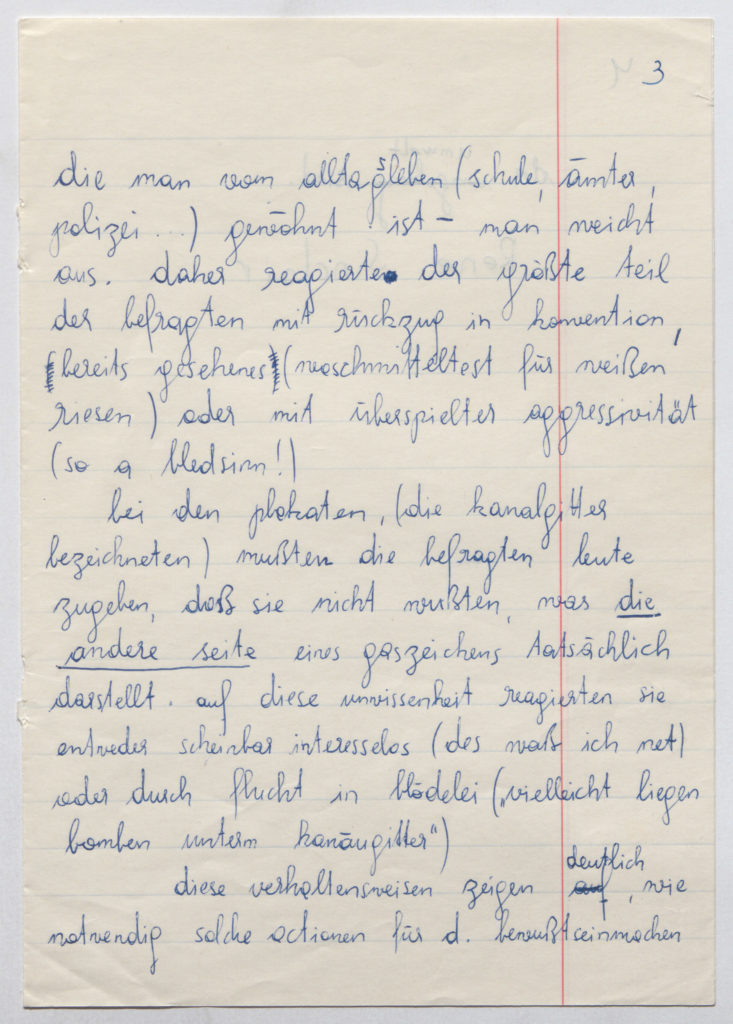 3
die man vom alltagsleben (schule, ämter,
polizei ...) gewöhnt ist – man weicht
aus. daher reagierte der größte teil
der befragten mit rückzug in konvention,
(bereits gesehenes) (waschmitteltest für weißen
riesen) oder mit überspielter aggressivität
(so a bledsinn!)
bei den plakaten, (die kanalgitter
bezeichneten) mußten die befragten leute
zugeben, daß sie nicht wußten, was die
andere seite eines gaszeichens tatsächlich
darstellt. auf diese unwissenheit reagierten sie
entweder scheinbar interesselos (des waß ich net)
oder durch flucht in blödelei („vielleicht liegen
bomben unterm kanäugitter")
diese verhaltensweisen zeigen deutlich, wie
notwendig solche actionen für d. bewußtseinmachen